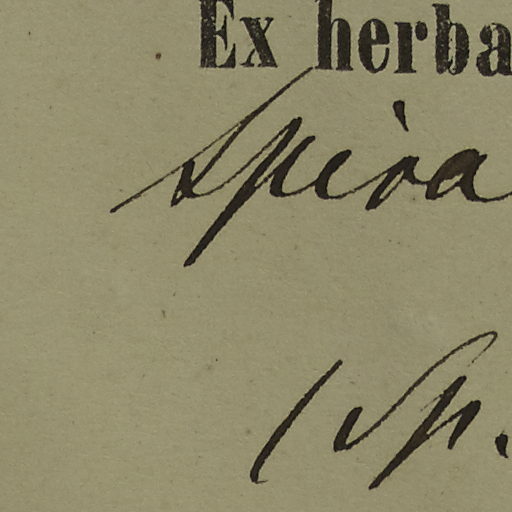 Ex herba
Spira
(Sp.